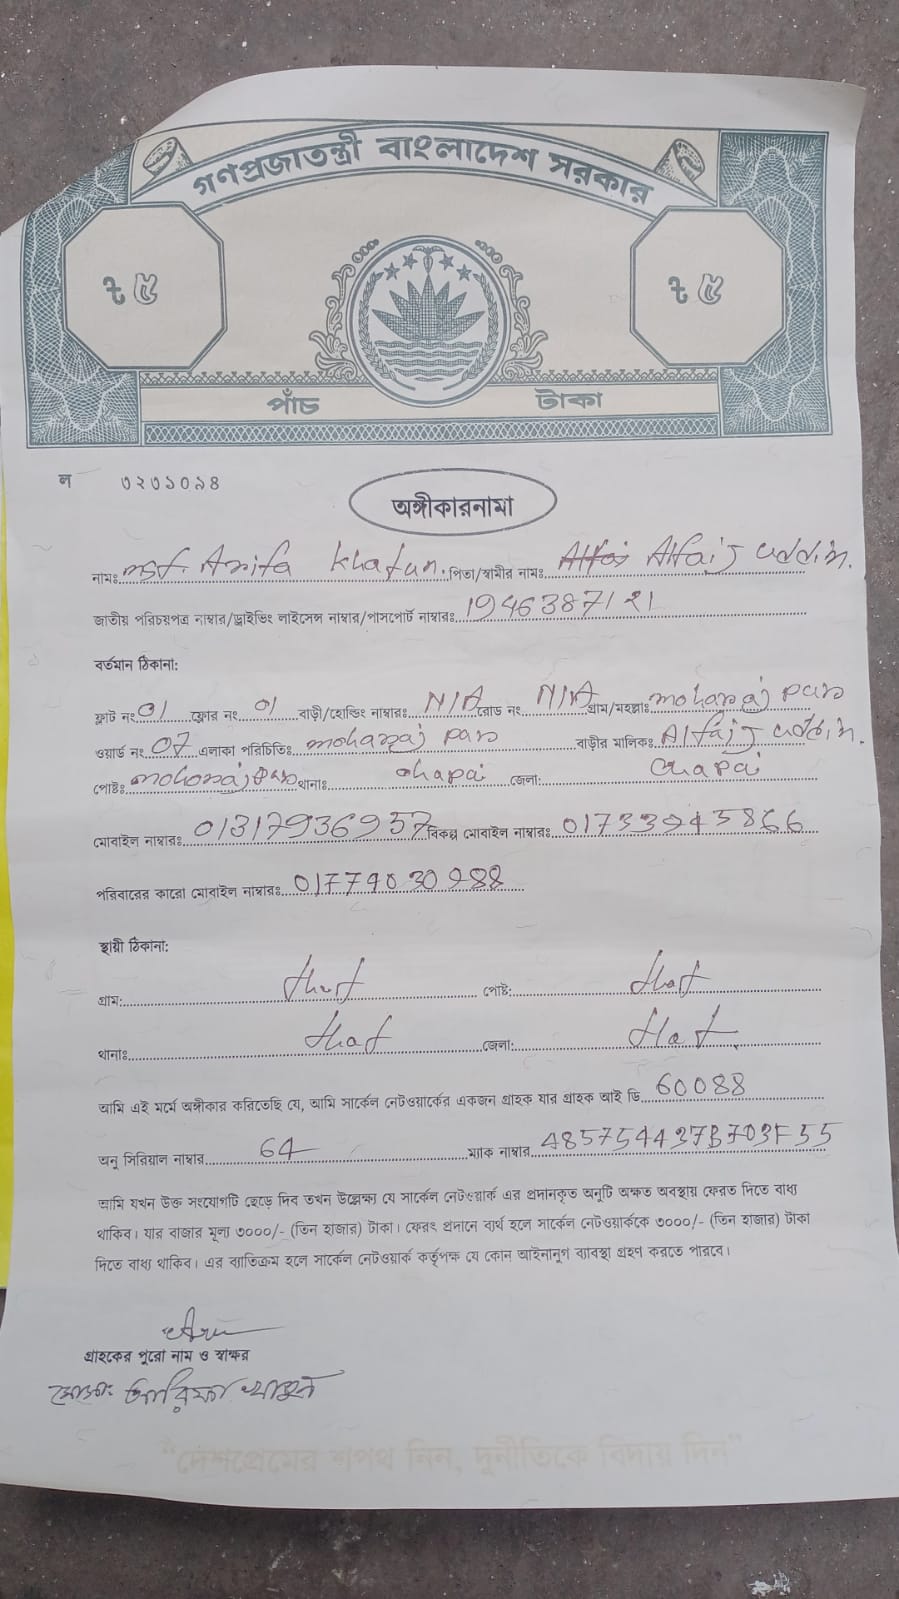 গণপ্রজাতন্ত্রী বাংলাদেশ সরকার
৳ ৫ ৳ ৫
পাঁচ টাকা
ল ৩২৩১০৯৪
অঙ্গীকারনামা
নামঃ mst. Arifa Khatun. পিতা/স্বামীর নামঃ Alfaj uddin.
জাতীয় পরিচয়পত্র নাম্বার/ড্রাইভিং লাইসেন্স নাম্বার/পাসপোর্ট নাম্বারঃ 1946387121
বর্তমান ঠিকানা:
ফ্লাট নং 01 ফ্লোর নং 01 বাড়ী/হোল্ডিং নাম্বারঃ N/A রোড নং N/A গ্রাম/মহল্লাঃ mohonaj para
ওয়ার্ড নং 07 এলাকা পরিচিতিঃ mohanaj para বাড়ীর মালিকঃ Alfaj uddin.
পোষ্টঃ থানাঃ chapai জেলা: Chapai
মোবাইল নাম্বারঃ 01317936957 বিকল্প মোবাইল নাম্বারঃ 01733945866
পরিবারের কারো মোবাইল নাম্বারঃ 01774030988
স্থায়ী ঠিকানা:
গ্রাম: পোষ্ট:
থানাঃ জেলা:
আমি এই মর্মে অঙ্গীকার করিতেছি যে, আমি সার্কেল নেটওয়ার্কের একজন গ্রাহক যার গ্রাহক আই ডি 60088
অনু সিরিয়াল নাম্বার 64 ম্যাক নাম্বার 485754437B703F55
আমি যখন উক্ত সংযোগটি ছেড়ে দিব তখন উল্লেক্ষ্য যে সার্কেল নেটওয়ার্ক এর প্রদানকৃত অনুটি অক্ষত অবস্থায় ফেরত দিতে বাধ্য
থাকিব। যার বাজার মূল্য ৩০০০/- (তিন হাজার) টাকা। ফেরৎ প্রদানে ব্যর্থ হলে সার্কেল নেটওয়ার্ককে ৩০০০/- (তিন হাজার) টাকা
দিতে বাধ্য থাকিব। এর ব্যতিক্রম হলে সার্কেল নেটওয়ার্ক কর্তৃপক্ষ যে কোন আইনানুগ ব্যবস্থা গ্রহণ করতে পারবে।
গ্রাহকের পুরো নাম ও স্বাক্ষর
মোসাঃ আরিফা খাতুন
"দেশপ্রেমের শপথ নিন, দুর্নীতিকে বিদায় দিন"